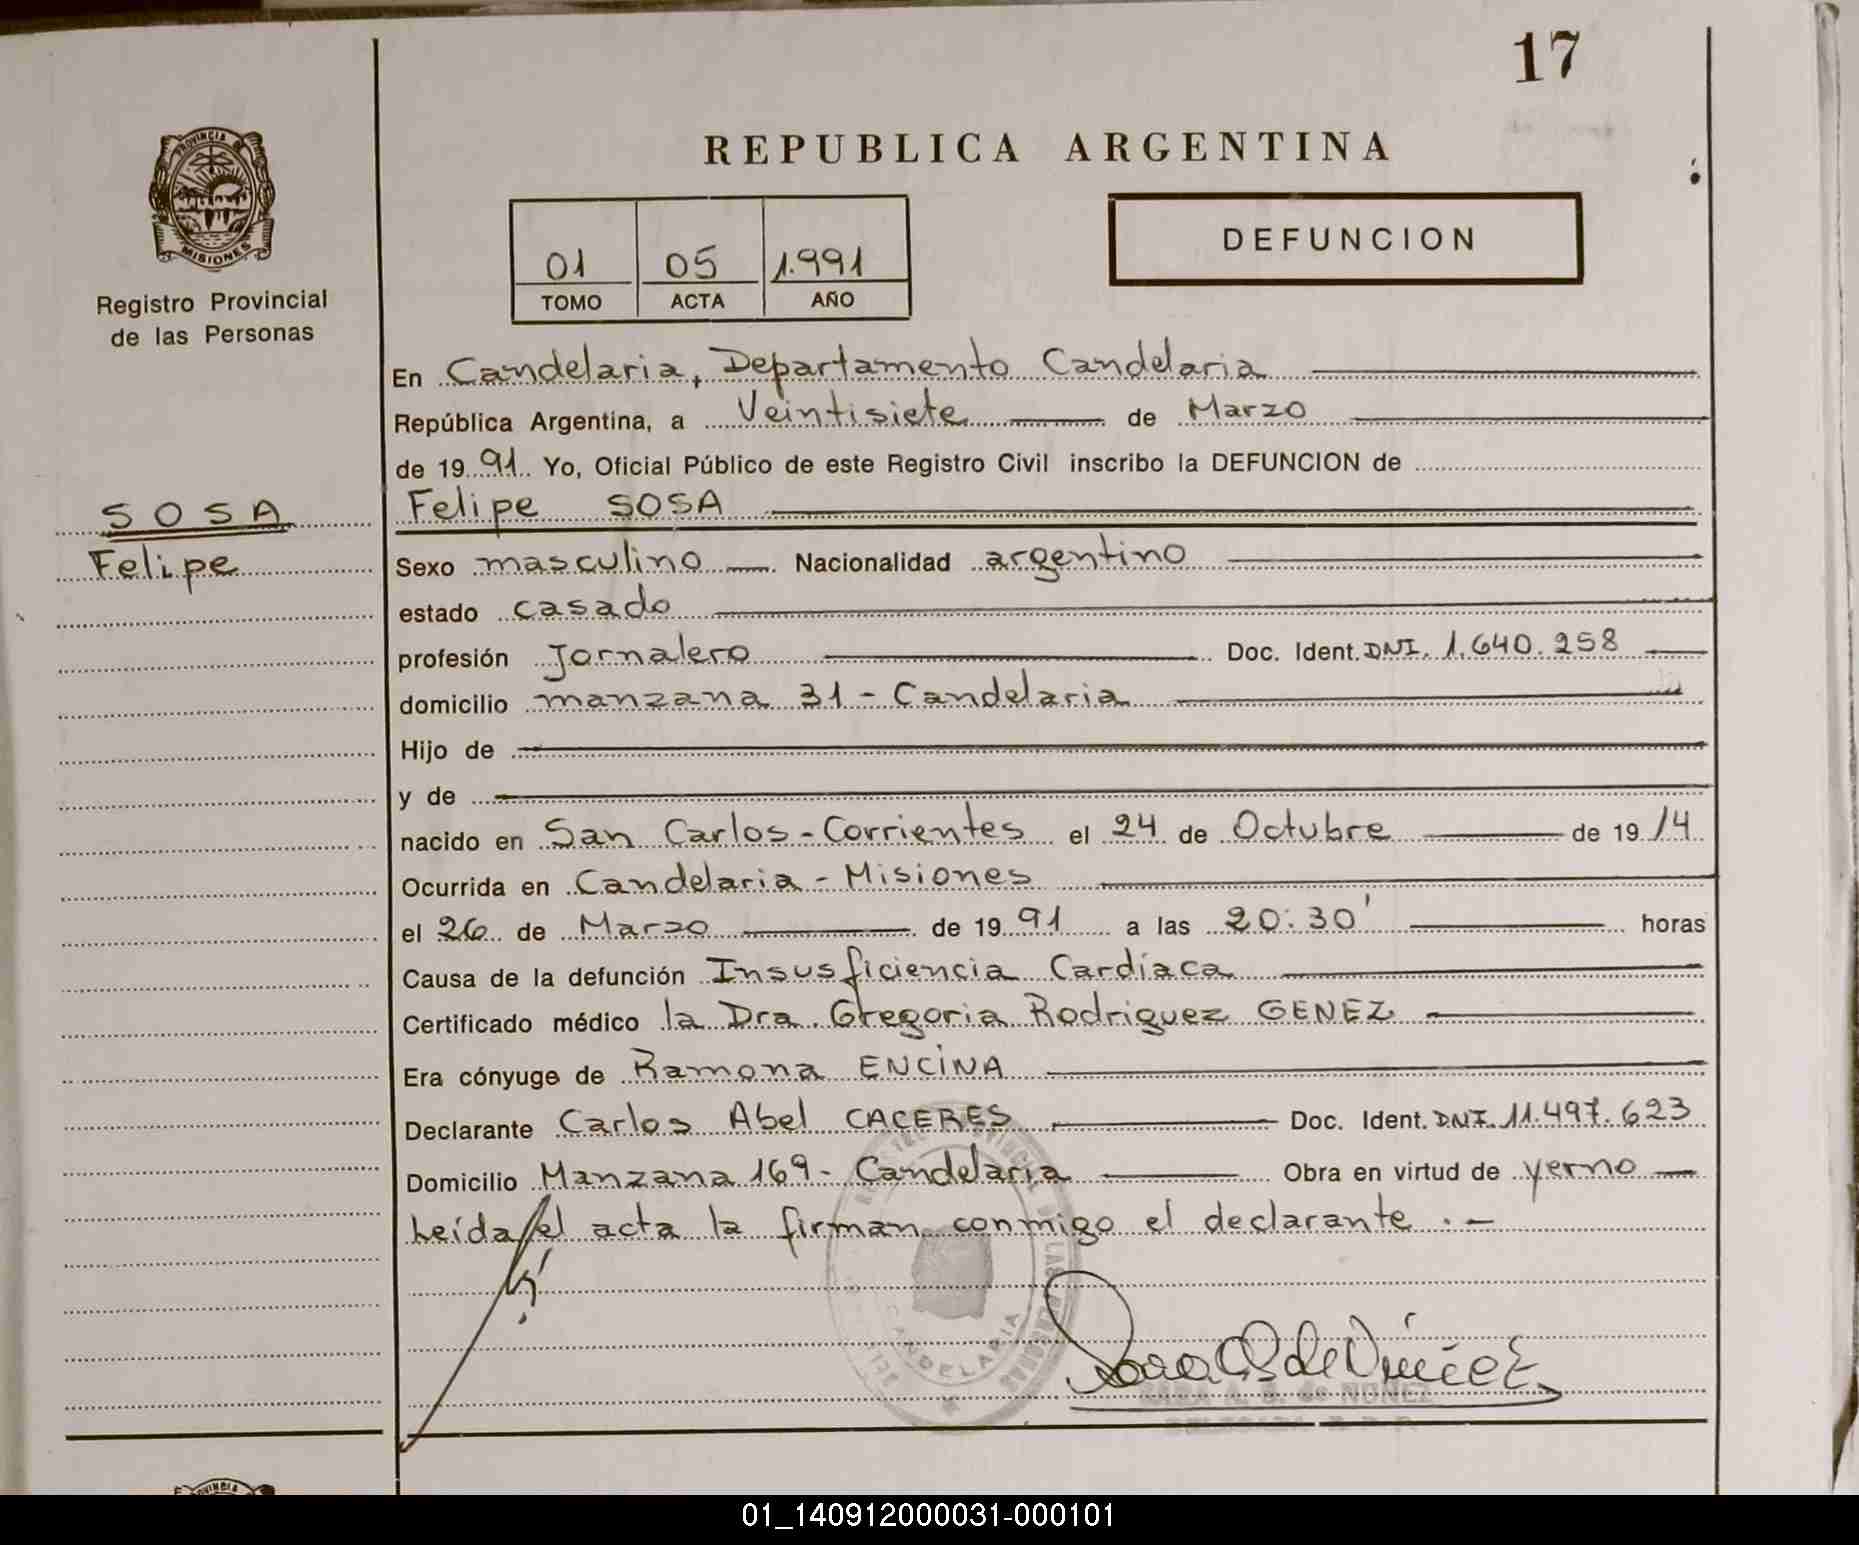 17
PROVINCIA
MISIONES
Registro Provincial
de las Personas
SOSA
Felipe
REPUBLICA ARGENTINA
01 05 1.991
TOMO ACTA AÑO
DEFUNCION
En Candelaria, Departamento Candelaria
República Argentina, a Veintisiete de Marzo
de 19 91 Yo, Oficial Público de este Registro Civil inscribo la DEFUNCION de
Felipe SOSA
Sexo masculino Nacionalidad argentino
estado casado
profesión Jornalero Doc. Ident. DNI. 1.640.258
domicilio manzana 31 - Candelaria
Hijo de
y de
nacido en San Carlos - Corrientes el 24 de Octubre de 19 14
Ocurrida en Candelaria - Misiones
el 26 de Marzo de 19 91 a las 20:30' horas
Causa de la defunción Insusficiencia Cardíaca
Certificado médico la Dra. Gregoria Rodriguez GENEZ
Era cónyuge de Ramona ENCINA
Declarante Carlos Abel CACERES Doc. Ident. DNI. 11.497.623
Domicilio Manzana 169 - Candelaria Obra en virtud de yerno
Leída el acta la firman conmigo el declarante . -
CANDELARIA
SARA A. S. de NUÑEZ
PROVINCIA
01_140912000031-000101